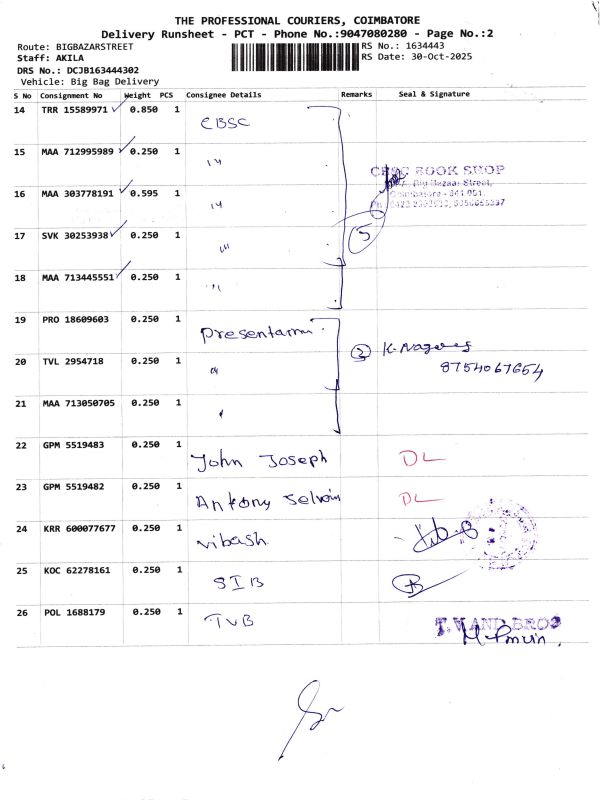 THE PROFESSIONAL COURIERS, COIMBATORE
Delivery Runsheet - PCT - Phone No.:9047080280 - Page No.:2
Route: BIGBAZARSTREET
RS No.: 1634443
Staff: AKILA
RS Date: 30-Oct-2025
DRS No.: DCJB163444302
Vehicle: Big Bag Delivery
S No Consignment No Weight PCS Consignee Details Remarks Seal & Signature
14 TRR 15589971 ✓ 0.850 1 CBSC
15 MAA 712995989 ✓ 0.250 1 "
CBSC BOOK SHOP
Big Bazaar Street,
Coimbatore - 641 001.
16 MAA 303778191 ✓ 0.595 1 "
17 SVK 30253938 ✓ 0.250 1 " 5
18 MAA 713445551 ✓ 0.250 1 "
19 PRO 18609603 0.250 1
3 K. Nagaraj
20 TVL 2954718 0.250 1 " 8754067654
21 MAA 713050705 0.250 1 "
22 GPM 5519483 0.250 1 John Joseph DL
23 GPM 5519482 0.250 1 Antony Selvin DL
24 KRR 600077677 0.250 1 vibash
25 KOC 62278161 0.250 1 SIB
26 POL 1688179 0.250 1 TVB
T.V AND BROS